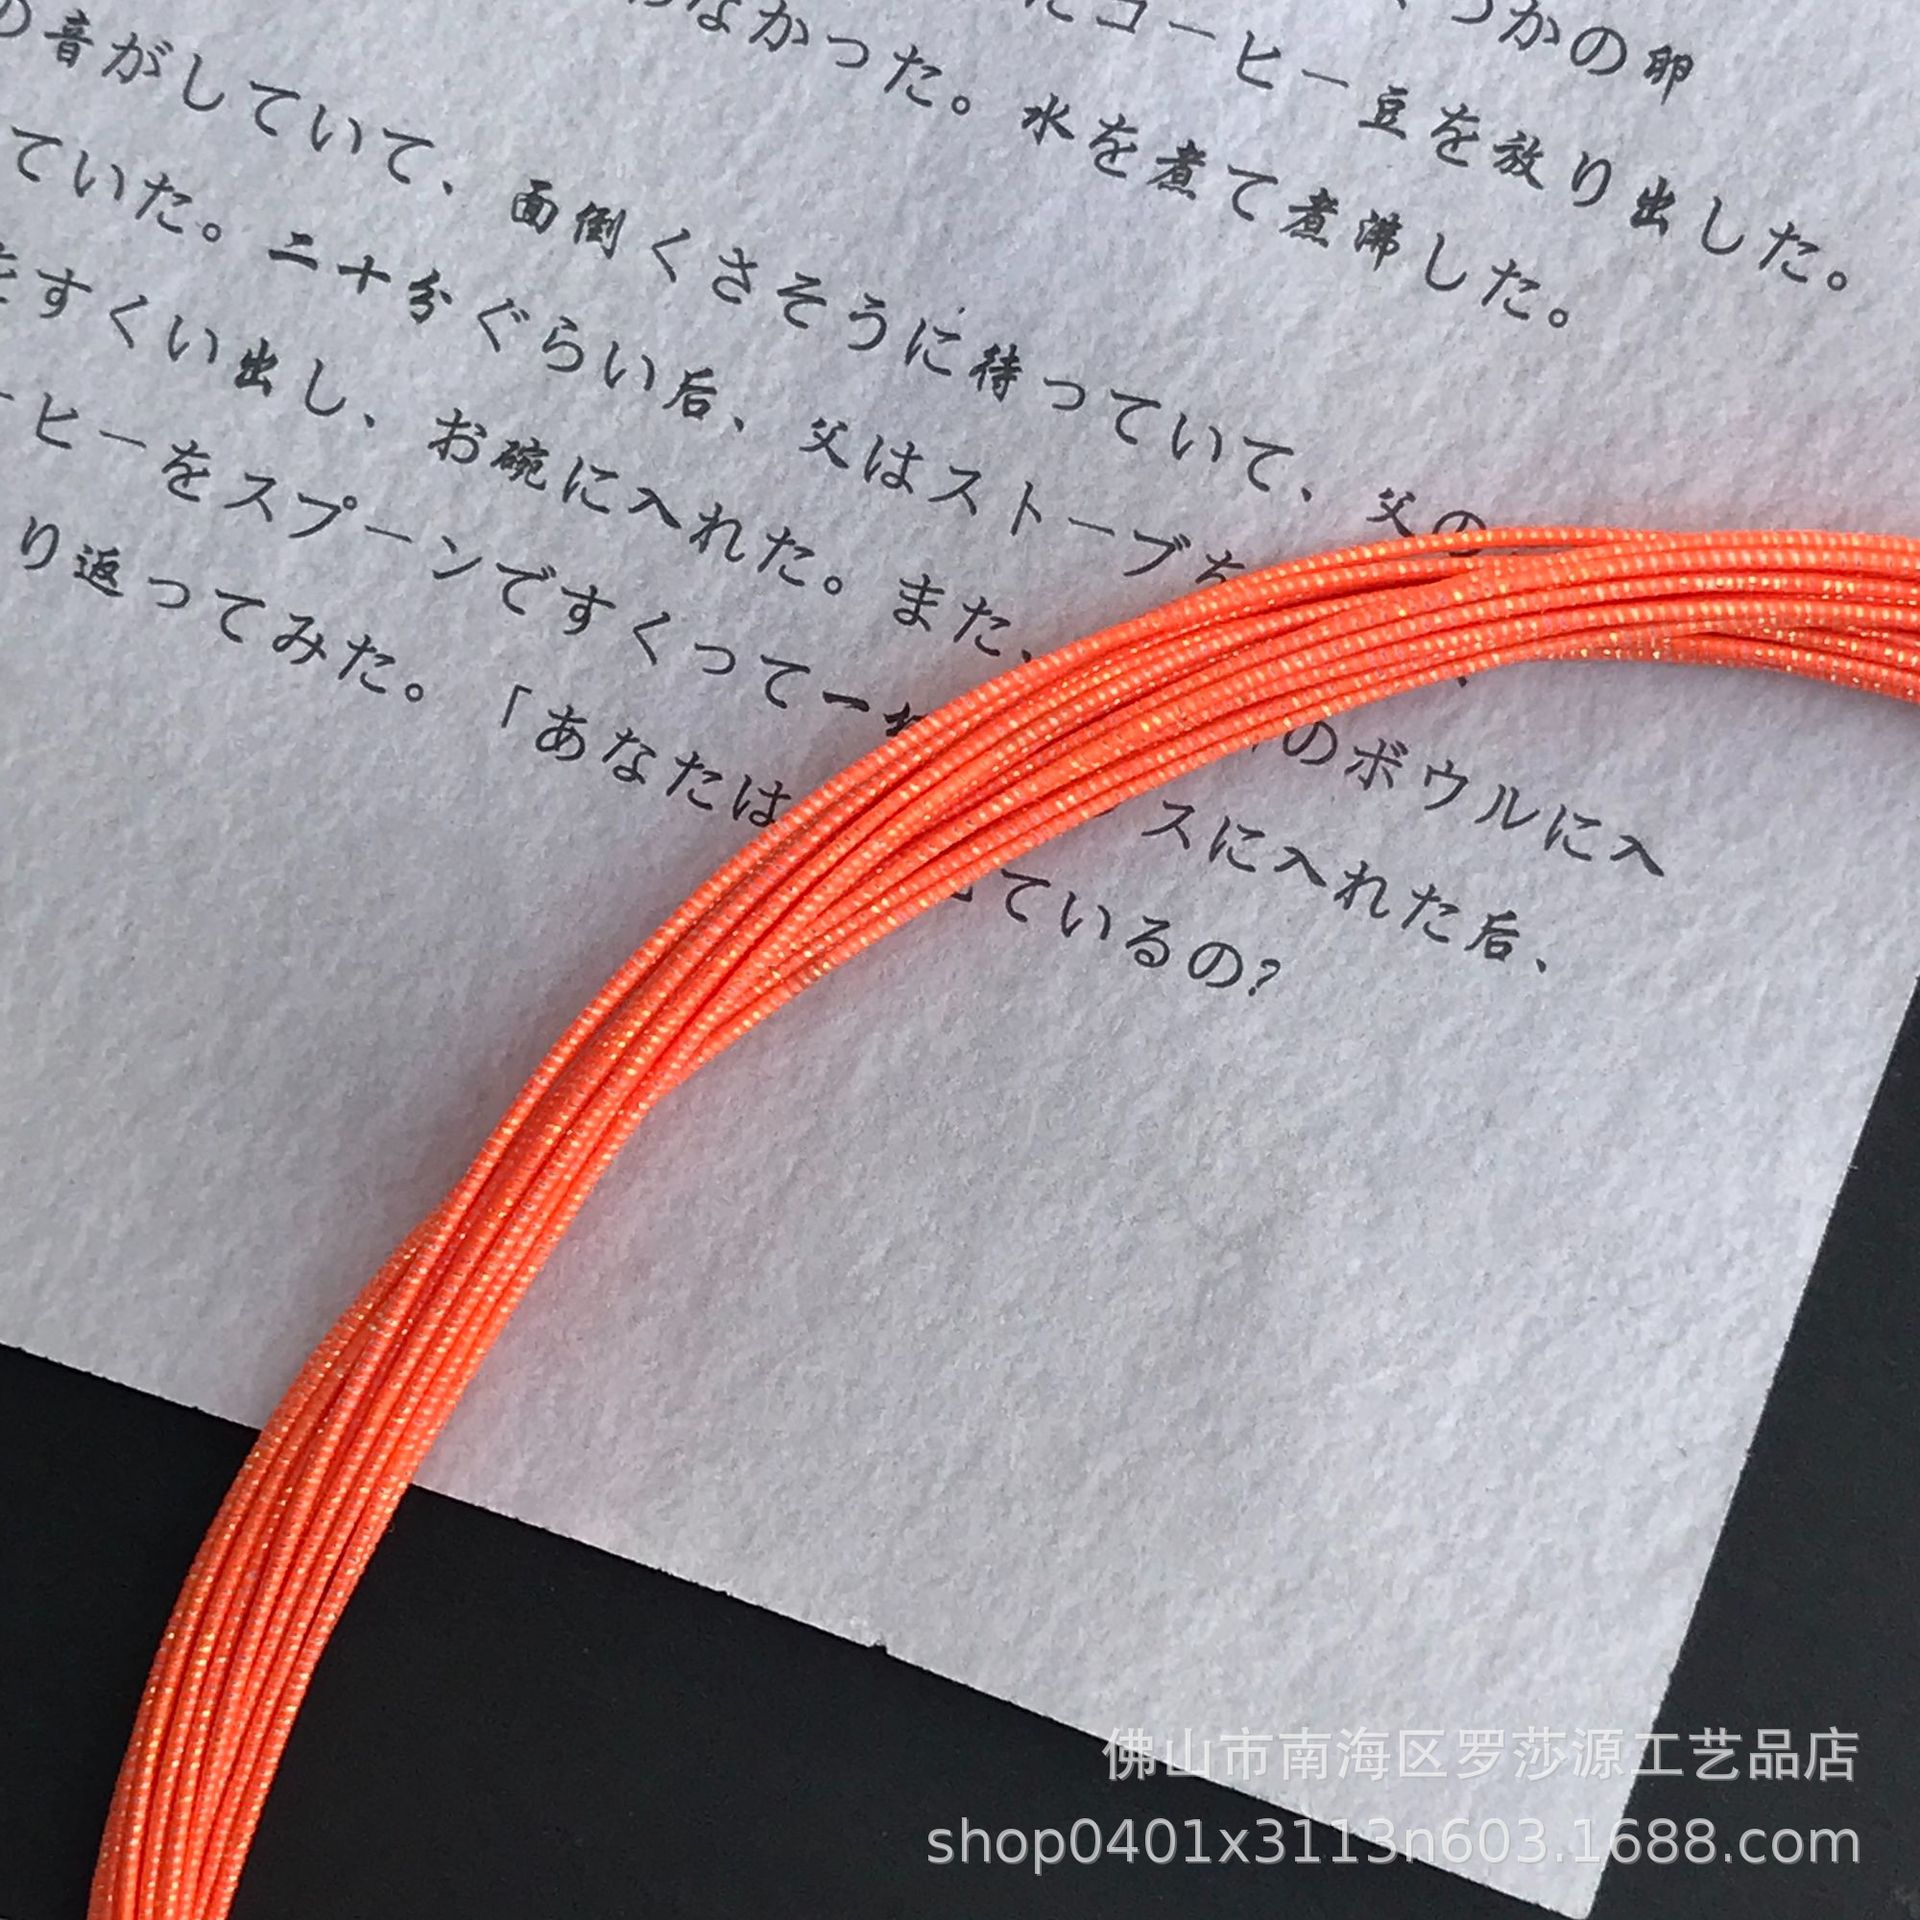 つかの卵
にコーヒー豆を放り出した。
なかった。水を煮て煮沸した。
の音がしていて、面倒くさそうに待っていて、父の
ていた。二十分ぐらい后、父はストーブを
をすくい出し、お碗に入れた。また、のボウルに入
ーヒーをスプーンですくって一スに入れた后、
り返ってみた。「あなたはているの?
佛山市南海区罗莎源工艺品店
shop0401x3113n603.1688.com